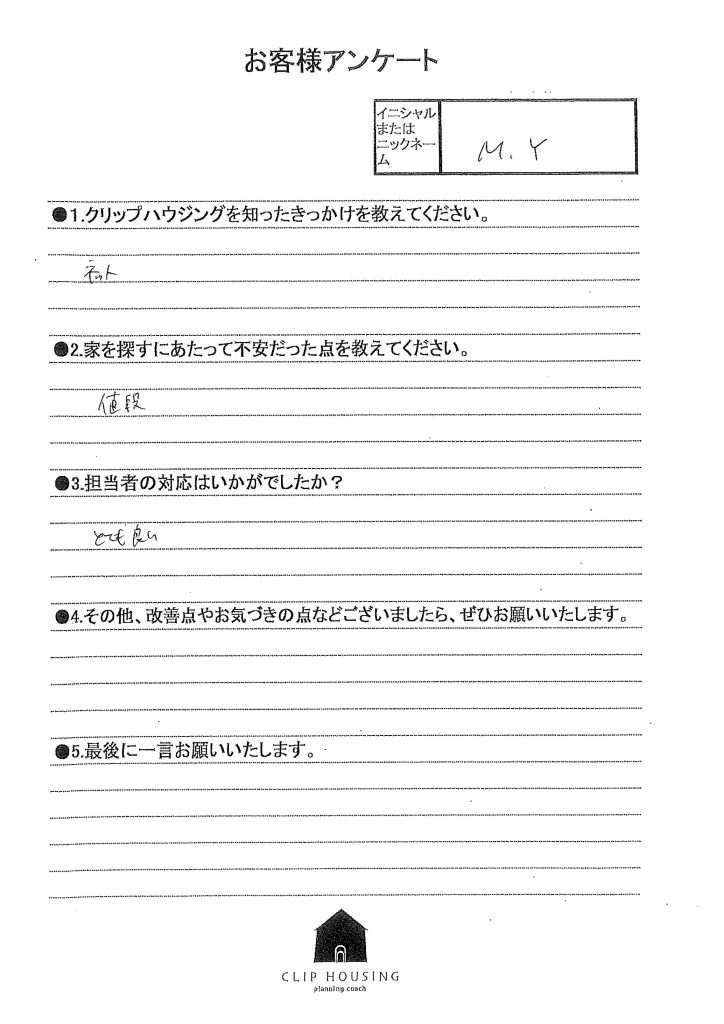 お客様アンケート
イニシャル
または
ニックネー
ム
M. Y
●1.クリップハウジングを知ったきっかけを教えてください。
ネット
●2.家を探すにあたって不安だった点を教えてください。
値段
●3.担当者の対応はいかがでしたか？
とても良い
●4.その他、改善点やお気づきの点などございましたら、ぜひお願いいたします。
●5.最後に一言お願いいたします。
CLIP HOUSING
planning coach